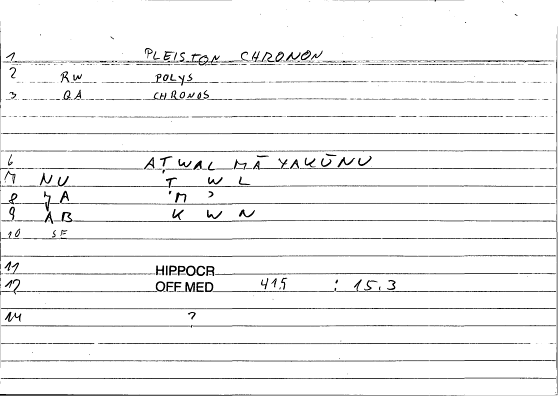 1 PLEISTON CHRONON
2 RW POLYS
3 QA CHRONOS
6 AṬWAL MĀ YAKŪNU
7 NU Ṭ W L
8 A M
9 AB K W N
10 SE
11 HIPPOCR
12 OFF MED 415 : 15.3
14 ?